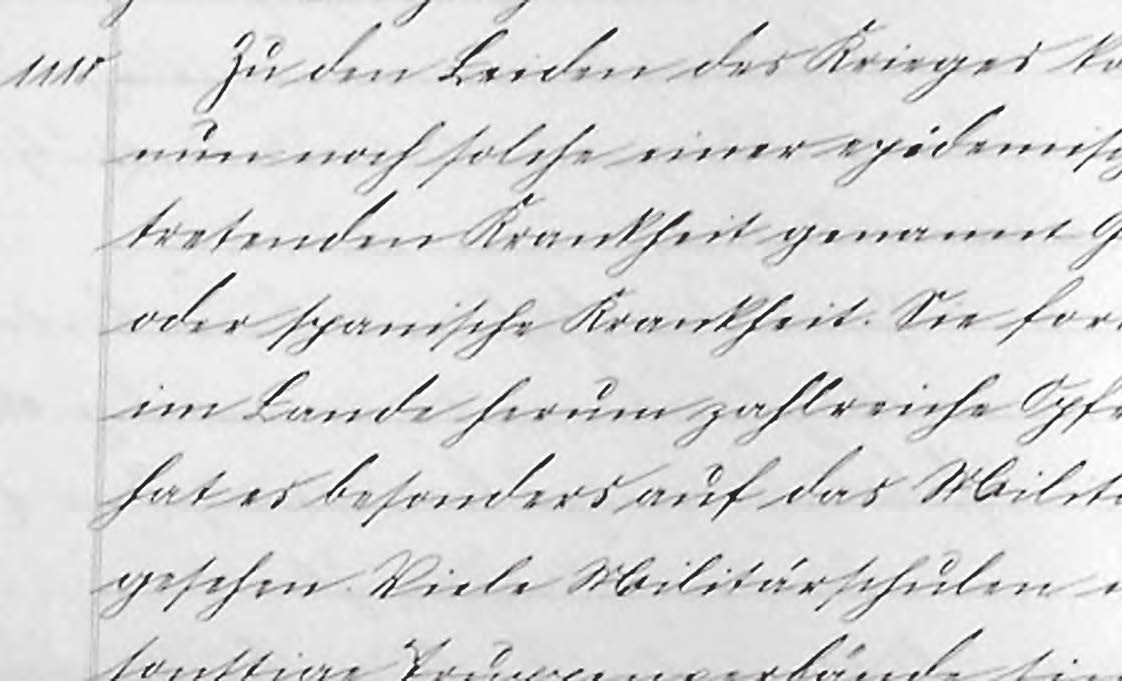 Zu den Leiden des Krieges ko
nun noch solche einer epidemisch
tretenden Krankheit genannt G
oder spanische Krankheit. Sie for
im Lande herum zahlreiche Opfe
hat es besonders auf das Militä
gesehen. Viele Militärschulen
sonstige Truppenverbände sin